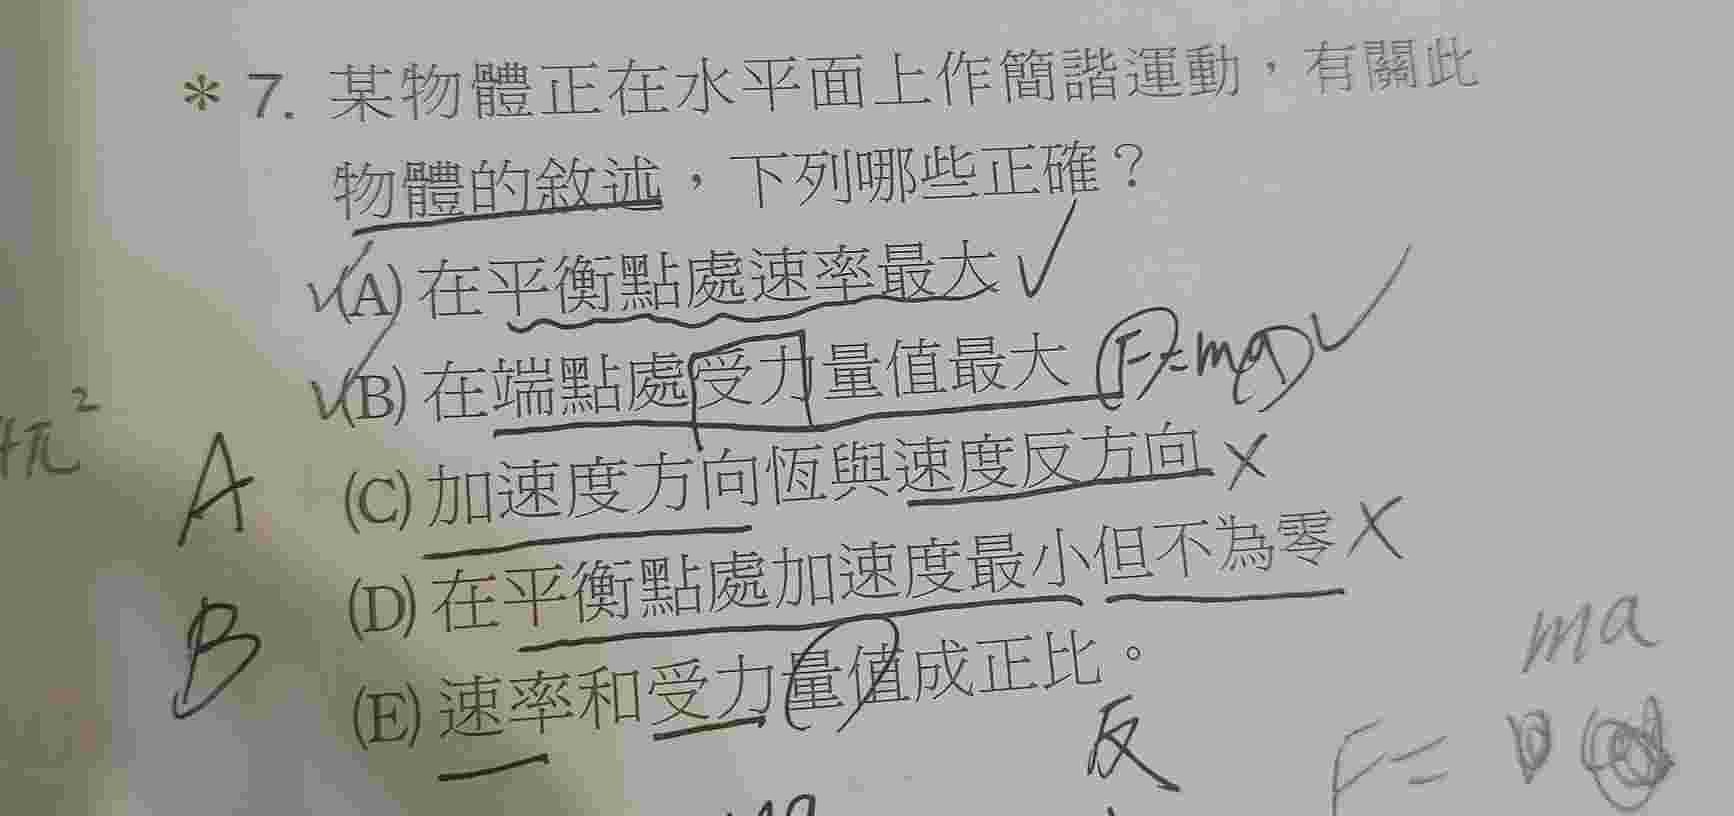 * 7. 某物體正在水平面上作簡諧運動，有關此
物體的敘述，下列哪些正確？
✓(A) 在平衡點處速率最大 ✓
✓(B) 在端點處受力量值最大 F=ma ✓
(C) 加速度方向恆與速度反方向 ×
(D) 在平衡點處加速度最小但不為零 ×
(E) 速率和受力量值成正比。
反
A
B
4π²
ma
F=
ma